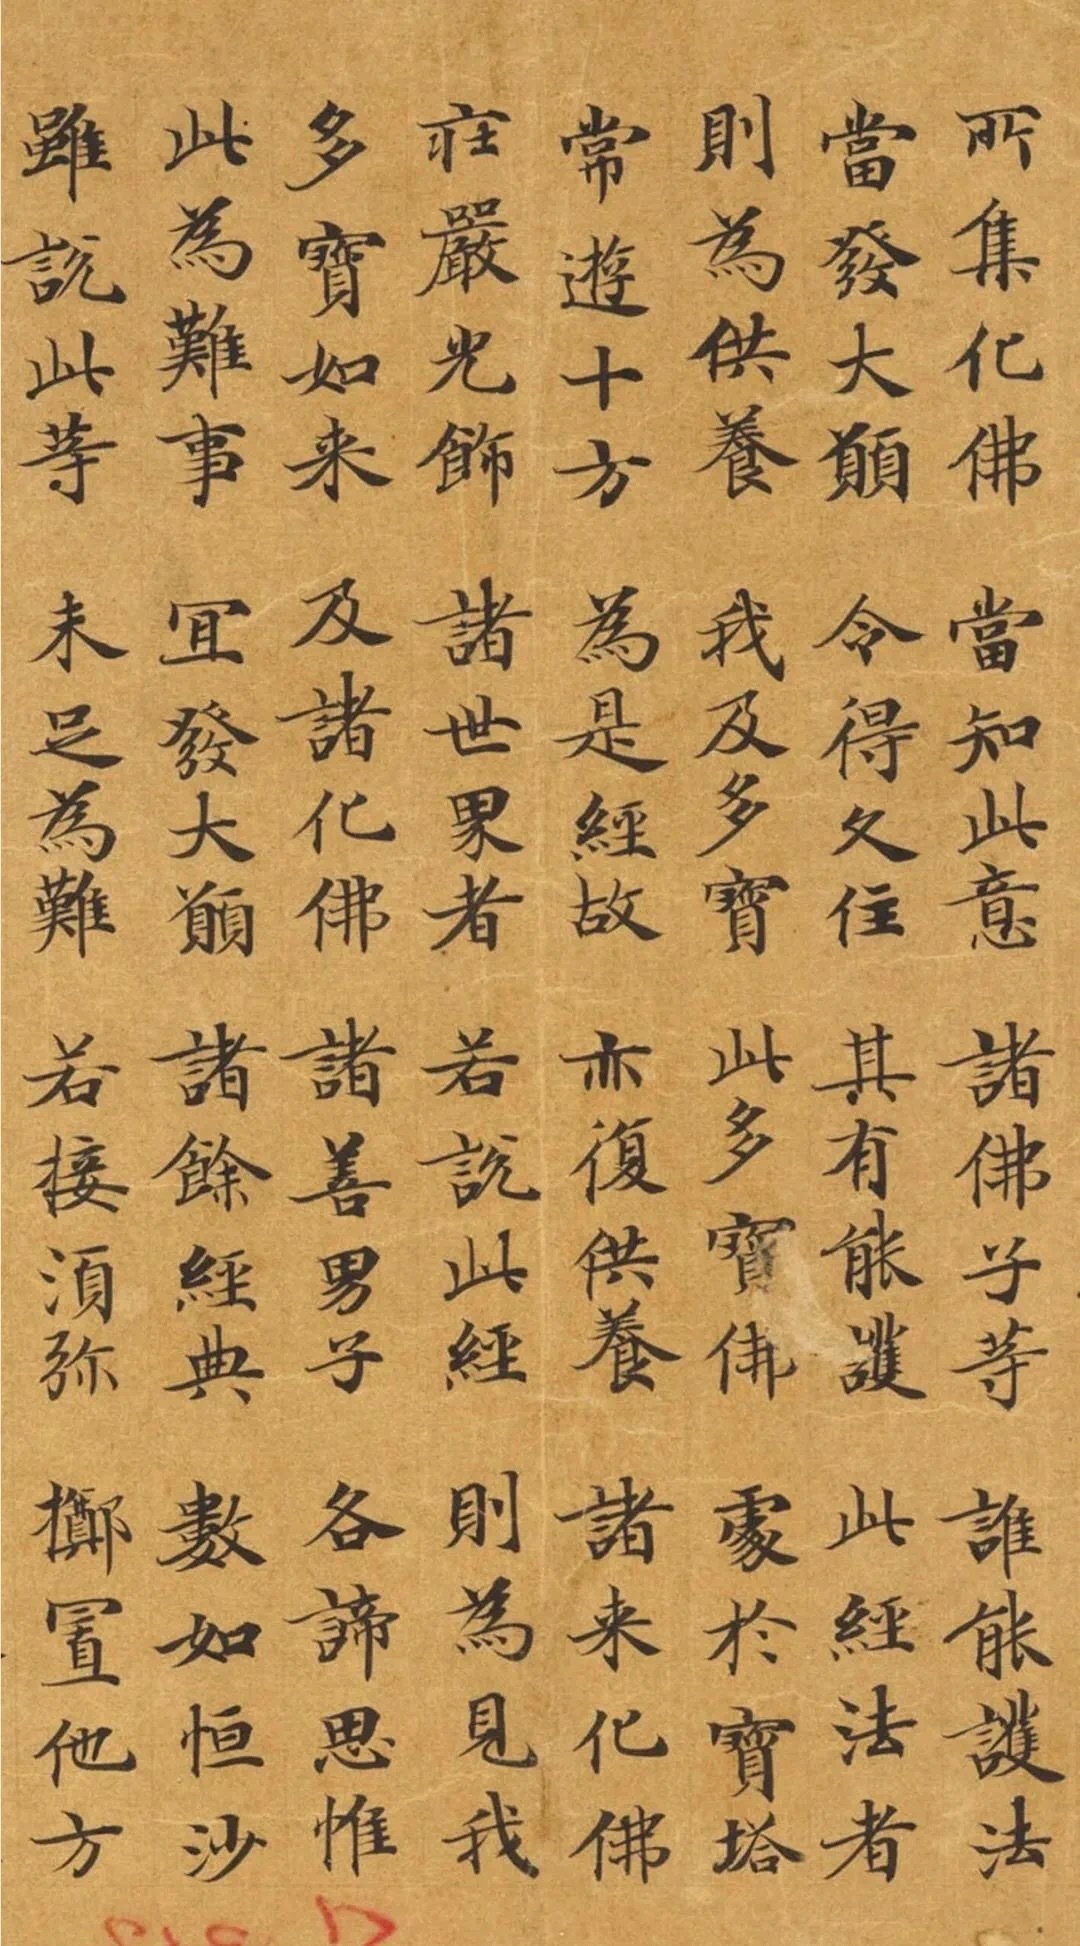 所集化佛 當知此意 諸佛子等 誰能護法
當發大願 令得久住 其有能護 此經法者
則為供養 我及多寶 此多寶佛 處於寶塔
常遊十方 為是經故 亦復供養 諸来化佛
莊嚴光飾 諸世界者 若說此經 則為見我
多寶如来 及諸化佛 諸善男子 各諦思惟
此為難事 冝發大願 諸餘經典 數如恒沙
雖說此等 未足為難 若接湏弥 擲置他方